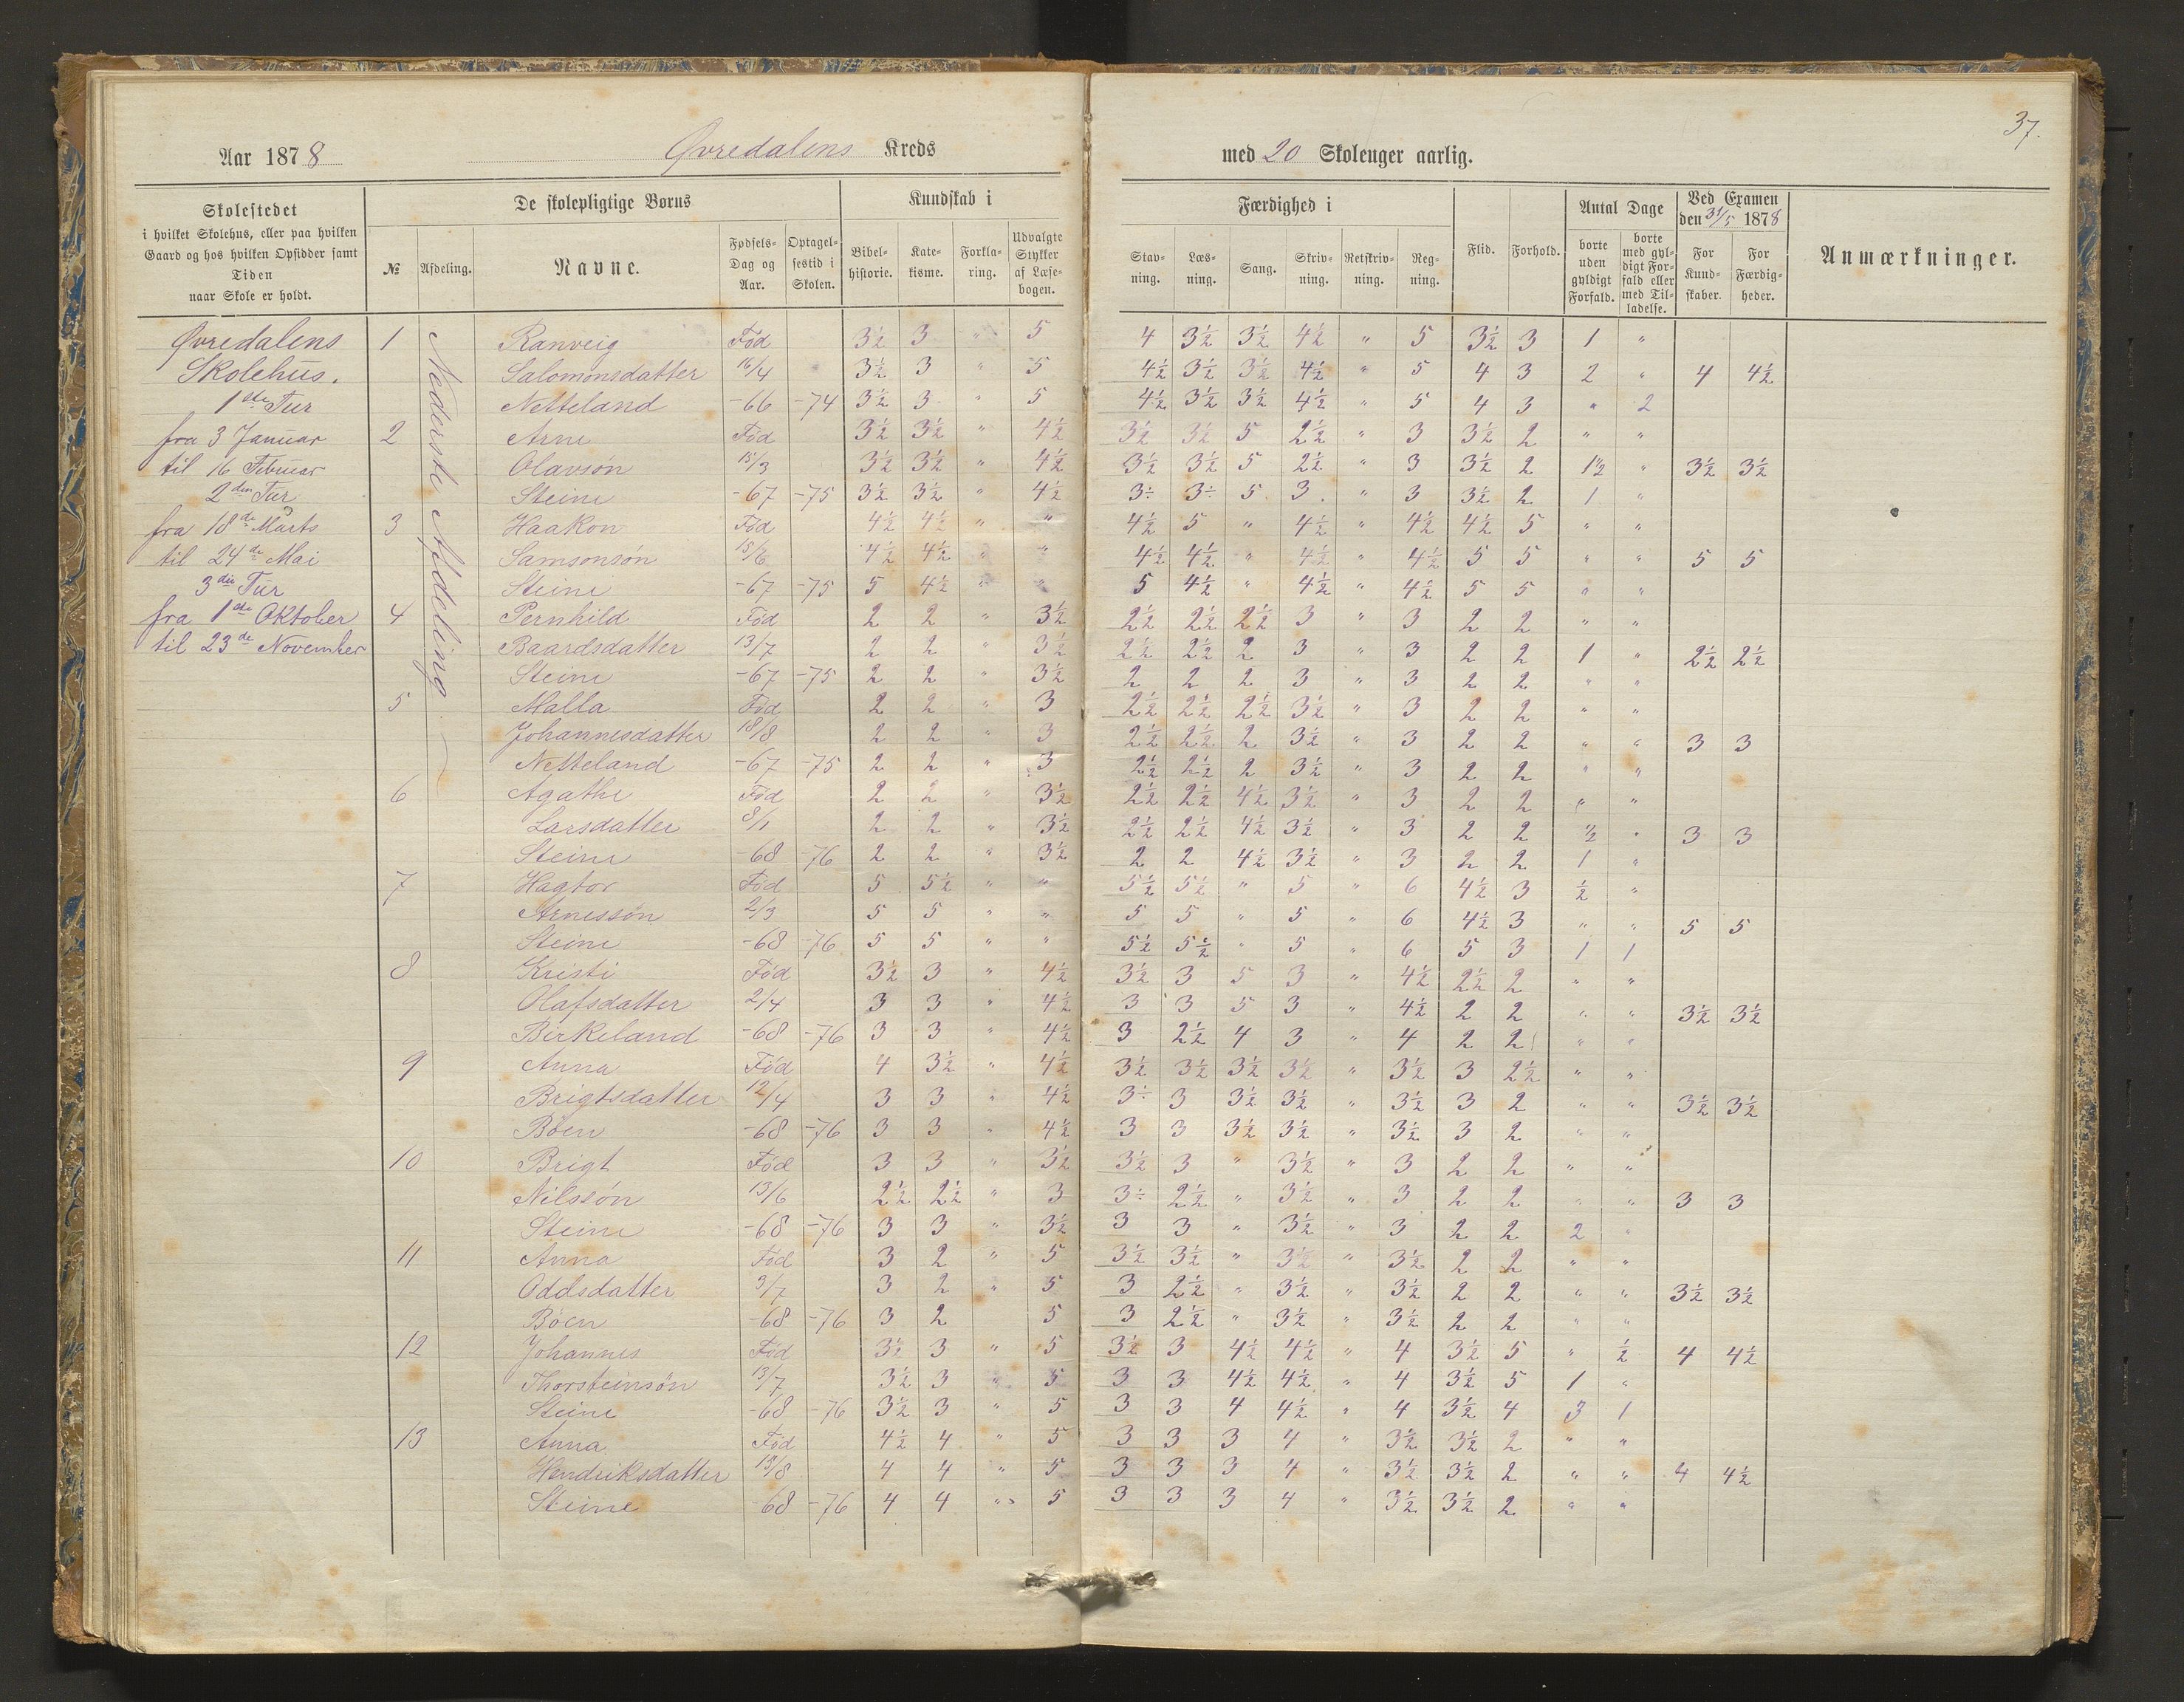 37.
Aar 1878 Øvredalens Kreds med 20 Skoleuger aarlig.
Skolestedet
i hvilket Skolehus, eller paa hvilken
Gaard og hos hvilken Opsidder samt
Tiden
naar Skole er holdt.
De skolepligtige Børns
№ Afdeling. Navne. Fødsels-Dag og Aar. Optagel-sestid i Skolen.
Kundskab i
Bibel-historie. Kate-kisme. Forkla-ring. Udvalgte Stykker af Læse-bogen.
Færdighed i
Stav-ning. Læs-ning. Sang. Skriv-ning. Retskriv-ning. Reg-ning.
Flid. Forhold.
Antal Dage
borte uden gyldigt Forfald. borte med gyl-digt For-fald eller med Til-ladelse.
Ved Examen den 31/5 1878
For Kund-skaber. For Færdig-heder.
Anmærkninger.
Øvredalens
Skolehus.
1ste Tur
fra 3 Januar
til 16 Februar
2den Tur
fra 18de Marts
til 24de Mai
3die Tur
fra 1ste Oktober
til 23de November
Nederste Afdeling
1 Ranveig Fød 3½ 3 " 5 4 3½ 3½ 4½ " 5 3½ 3 1 "
Salomonsdatter 16/4 3½ 3 " 5 4½ 3½ 3½ 4½ " 5 4 3 2 " 4 4½
Netteland -66 -74 3½ 3 " 5 4½ 3½ 3½ 4½ " 5 4 3 " 2
2 Arne Fød 3½ 3½ " 4½ 3½ 3½ 5 2½ " 3 3½ 2 " "
Olavsøn 15/3 3½ 3½ " 4½ 3½ 3½ 5 2½ " 3 3½ 2 1½ " 3½ 3½
Steine -67 -75 3½ 3½ " 4½ 3÷ 3÷ 5 3 " 3 3½ 2 1 "
3 Haakon Fød 4½ 4½ " " 4½ 5 " 4½ " 4½ 4½ 5 " "
Samsonsøn 15/6 4½ 4½ " " 4½ 4½ " 4½ " 4½ 5 5 " " 5 5
Steine -67 -75 5 4½ " " 5 4½ " 4½ " 4½ 5 5 " "
4 Pernhild Fød 2 2 " 3½ 2½ 2½ 2½ 3 " 3 2 2 " "
Baardsdatter 13/7 2 2 " 3½ 2½ 2½ 2 3 " 3 2 2 1 " 2½ 2½
Steine -67 -75 2 2 " 3½ 2 2 2 3 " 3 2 2 " "
5 Malla Fød 2 2 " 3 2½ 2½ 2½ 3½ " 3 2 2 " "
Johannesdatter 18/8 2 2 " 3 2½ 2½ 2 3½ " 3 2 2 " " 3 3
Netteland -67 -75 2 2 " 3 2½ 2½ 2 3½ " 3 2 2 " "
6 Agathe Fød 2 2 " 3½ 2½ 2½ 4½ 3½ " 3 2 2 " "
Larsdatter 8/1 2 2 " 3½ 2½ 2½ 4½ 3½ " 3 2 2 ½ " 3 3
Steine -68 -76 2 2 " 3½ 2 2 4½ 3½ " 3 2 2 1 "
7 Hagtor Fød 5 5½ " " 5½ 5½ " 5 " 6 4½ 3 ½ "
Arnessøn 2/3 5 5 " " 5 5 " 5 " 6 4½ 3 " " 5 5
Steine -68 -76 5 5 " " 5½ 5½ " 5 " 6 5 3 1 1
8 Kristi Fød 3½ 3 " 4½ 3½ 3 5 3 " 4½ 2½ 2 " "
Olafsdatter 2/4 3 3 " 4½ 3 3 5 3 " 4½ 2 2 " " 3½ 3½
Birkeland -68 -76 3 3 " 4½ 3 2½ 4 3 " 4 2 2 " "
9 Anna Fød 4 3½ " 4½ 3½ 3½ 3½ 3½ " 3½ 3 2½ " "
Brigtsdatter 12/4 3 3 " 4½ 3÷ 3 3½ 3½ " 3½ 3 2 " " 3½ 3½
Böen -68 -76 3 3 " 4½ 3 3 3½ 3½ " 3½ 3 2 " "
10 Brigt Fød 3 3 " 3½ 3½ 3 " 3½ " 3 2 2 " "
Nilssøn 13/6 2½ 2½ " 3 3÷ 2½ " 3½ " 3 2 2 " " 3 3
Steine -68 -76 3 3 " 3½ 3 3 " 3½ " 3 2 2 2 "
11 Anna Fød 3 2 " 5 3½ 3½ " 3½ " 3½ 2 2 " "
Oddsdatter 3/7 3 2 " 5 3 2½ " 3½ " 3½ 2 2 " " 3½ 3½
Böen -68 -76 3 2 5 3 2½ " 3½ " 3½ 2 2 " "
12 Johannes Fød 3½ 3 " 5 3½ 3 4½ 4½ " 4 3½ 5 " ½ 4 4½
Thorsteinsøn 13/7 3½ 3 " 5 3 3 4½ 4½ " 4 3½ 5 1 "
Steine -68 -76 3½ 3 " 5 3 3 4 4½ " 4 3½ 4 3 1
13 Anna Fød 4½ 4 " 5 3 3 3 4 " 3½ 3½ 2 " "
Hendriksdatter 13/8 4 4 " 5 3 3 3 4 " 3½ 3½ 2 " " 4 4½
Steine 68 -76 4 4 " 5 3 3 3 4 " 3½ 3½ 2 " "